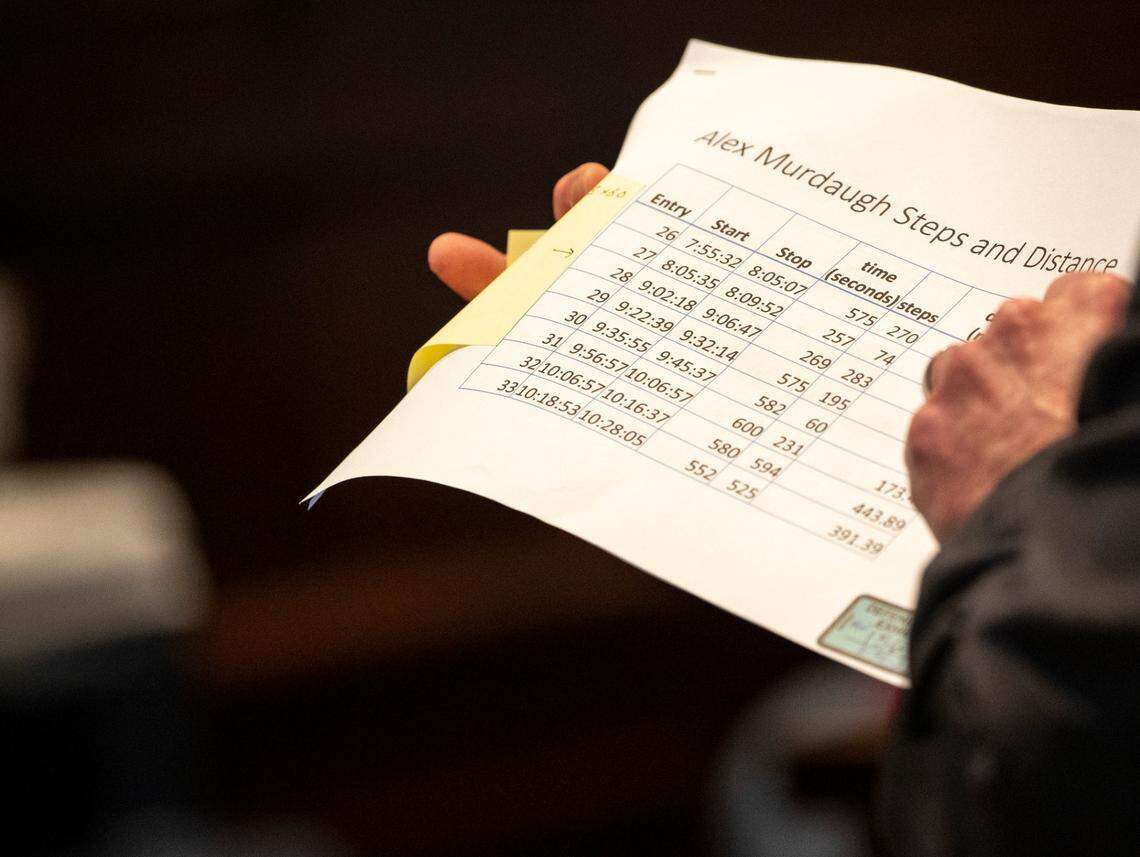 Alex Murdaugh Steps and Distance
Entry Start Stop time (seconds) steps
26 7:55:32 8:05:07 575 270
27 8:05:35 8:09:52 257 74
28 9:02:18 9:06:47 269 283
29 9:22:39 9:32:14 575 195
30 9:35:55 9:45:37 582 60
31 9:56:57 10:06:57 600 231 173.
32 10:06:57 10:16:37 580 594 443.89
33 10:18:53 10:28:05 552 525 391.39